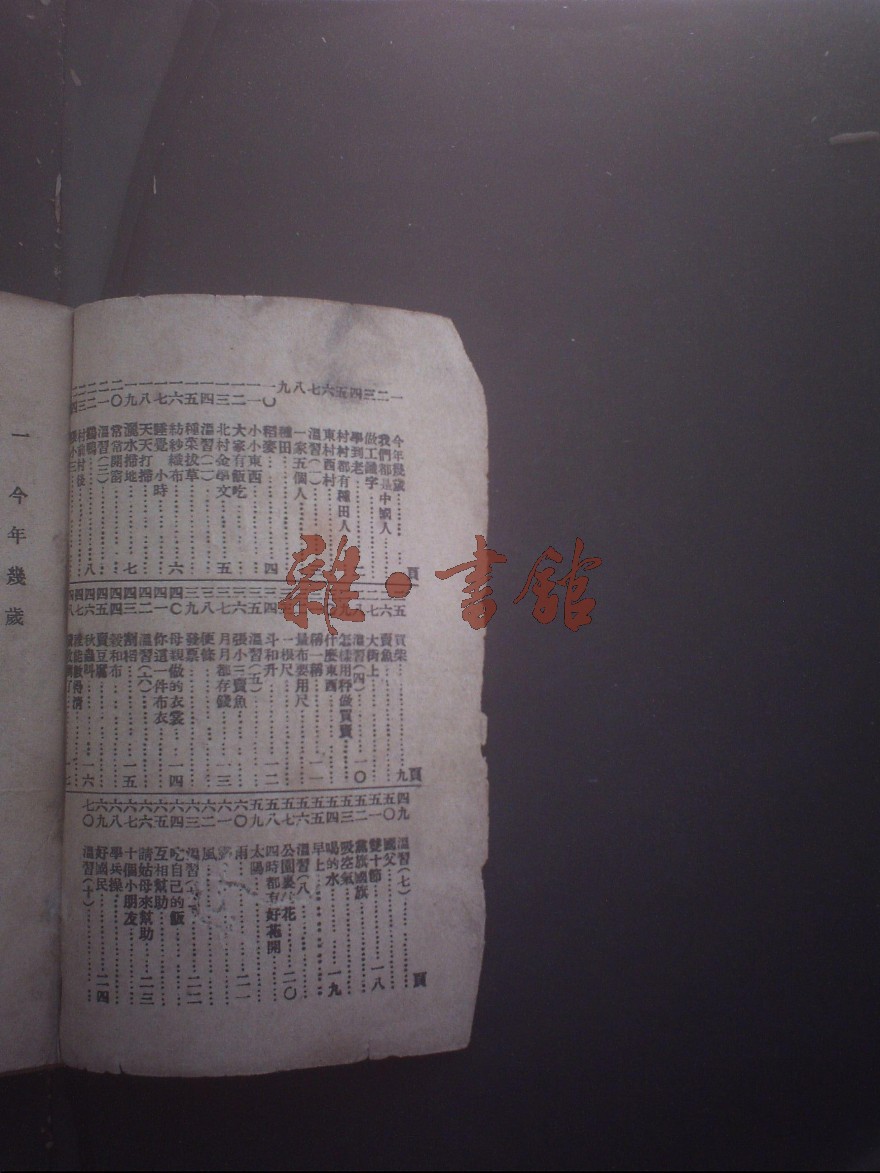 頁
一 今年幾歲
二 我們都是中國人
三 做工識字
四 學到老
五 村村都有種田人
六 東村西村
七 溫習(一)
八 一家五個人
九 種田
一〇 稻麥 四
一一 小小東西
一二 大家有飯吃
一三 北村金學文 五
一四 溫習(二)
一五 種菜拔草
一六 紡紗織布 六
一七 睡覺 小時
一八 天天打掃
一九 灑水掃地 七
二〇 常常開窗
二一 溫習(三)
二二 鷄鴨 八
村前村後
頁
二五 買柴 九
賣魚
大街上
溫習(四) 一〇
怎樣用秤做買賣
什麼東西
稱一稱 一一
量布要用尺
一根尺
斗和升 一二
三五 溫習(五)
三六 張小三賣魚
三七 月月都存錢 一三
三八 便條
三九 發票
四〇 母親做的衣裳 一四
四一 你這一件布衣
四二 溫習(六)
四三 割稻 一五
四四 穀和布
四五 賣豆腐
四六 秋蟲叫 一六
頁
四九 溫習(七)
五〇 國父
五一 雙十節 一八
五二 黨旗國旗
五三 吸空氣
五四 喝的水 一九
五五 早上
五六 溫習(八)
五七 公園裏 花 二〇
五八 四時都有好花開
五九 太陽
六〇 雨 二一
六一
六二 風
六三 溫習 二二
六四 吃自己的飯
六五 互相幫助
六六 請姑母來幫助 二三
六七 十個小朋友
六八 學兵操
六九 好國民 二四
七〇 溫習(十)
一 今年幾歲
雜·書館